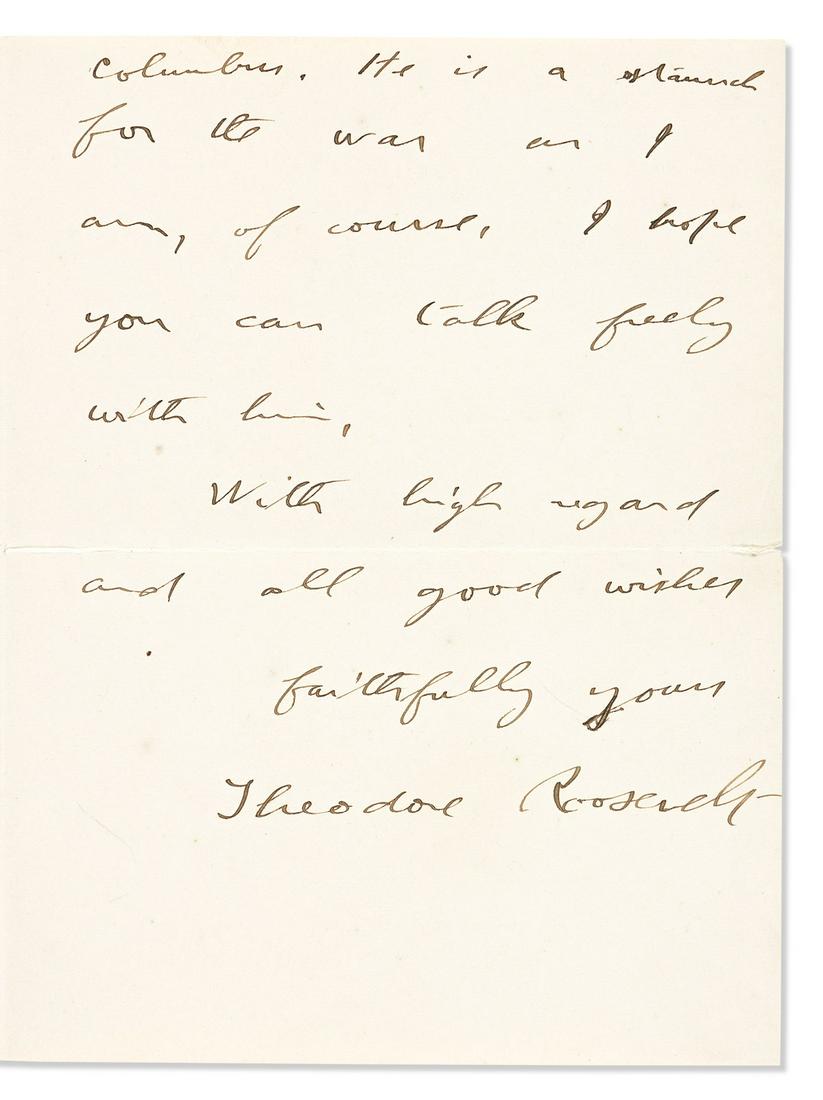 Columbus. He is a staunch
for the war as I
am, of course, I hope
you can talk freely
with him,
With high regard
and all good wishes
faithfully yours
Theodore Roosevelt